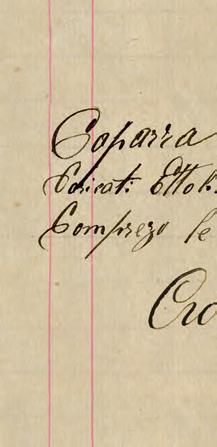 Coparra
Caricati Ettol.
Comprezo le
Cro